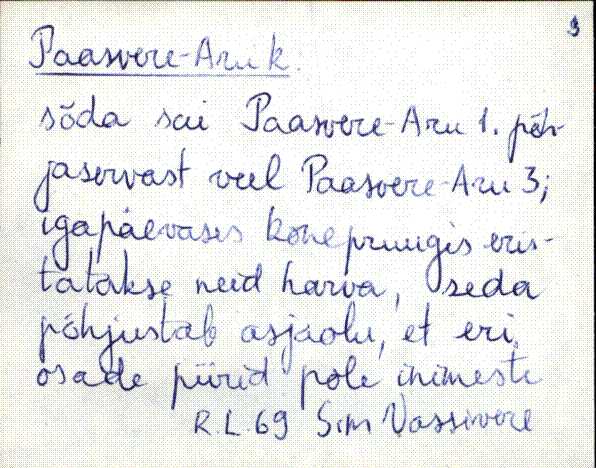 3
Paasvere-Aru k.
sõda sai Paasvere-Aru 1. põh-
jaservast veel Paasvere-Aru 3;
igapäevases kõnepruugis eris-
tatakse neid harva, seda
põhjustab asjaolu, et eri
osade piirid pole inimeste
R.L. 69 Sim Vassivere